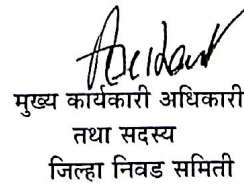 मुख्य कार्यकारी अधिकारी
तथा सदस्य
जिल्हा निवड समिती